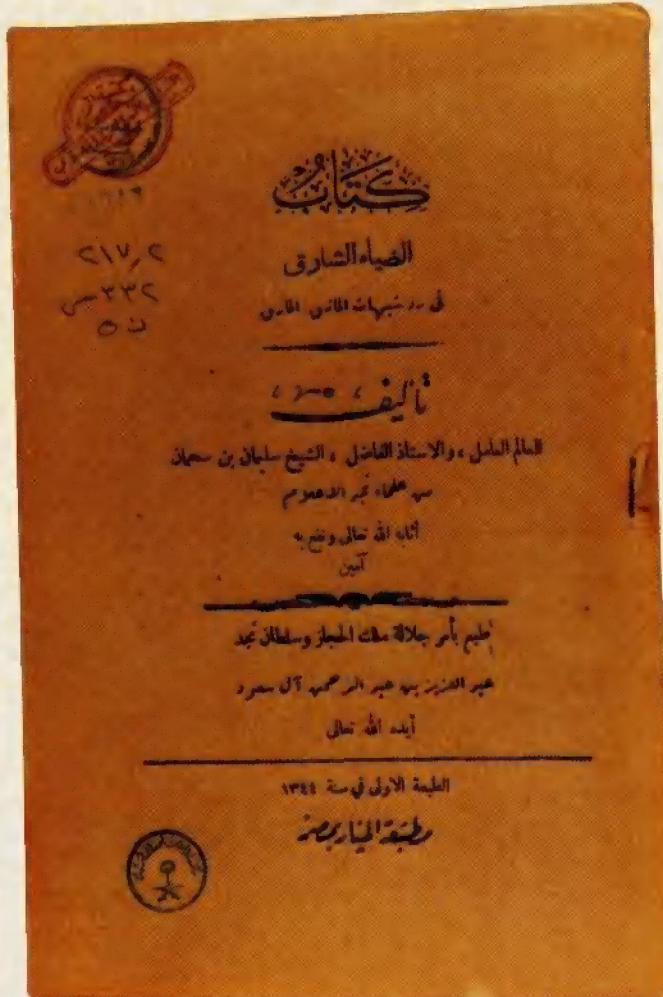 كتاب
٢١٧٫٢
٣٣٢ س
ض
الضياء الشارق
في رد شبهات الماذق المارق
تأليف
العالم العامل، والاستاذ الفاضل، الشيخ سليمان بن سحمان
من علماء نجد الاعلام
أثابه الله تعالى ونفع به
آمين
طبع بأمر جلالة ملك الحجاز وسلطان نجد
عبد العزيز بن عبد الرحمن آل سعود
أيده الله تعالى
الطبعة الاولى في سنة ١٣٤٤
مطبعة المنار بمصر